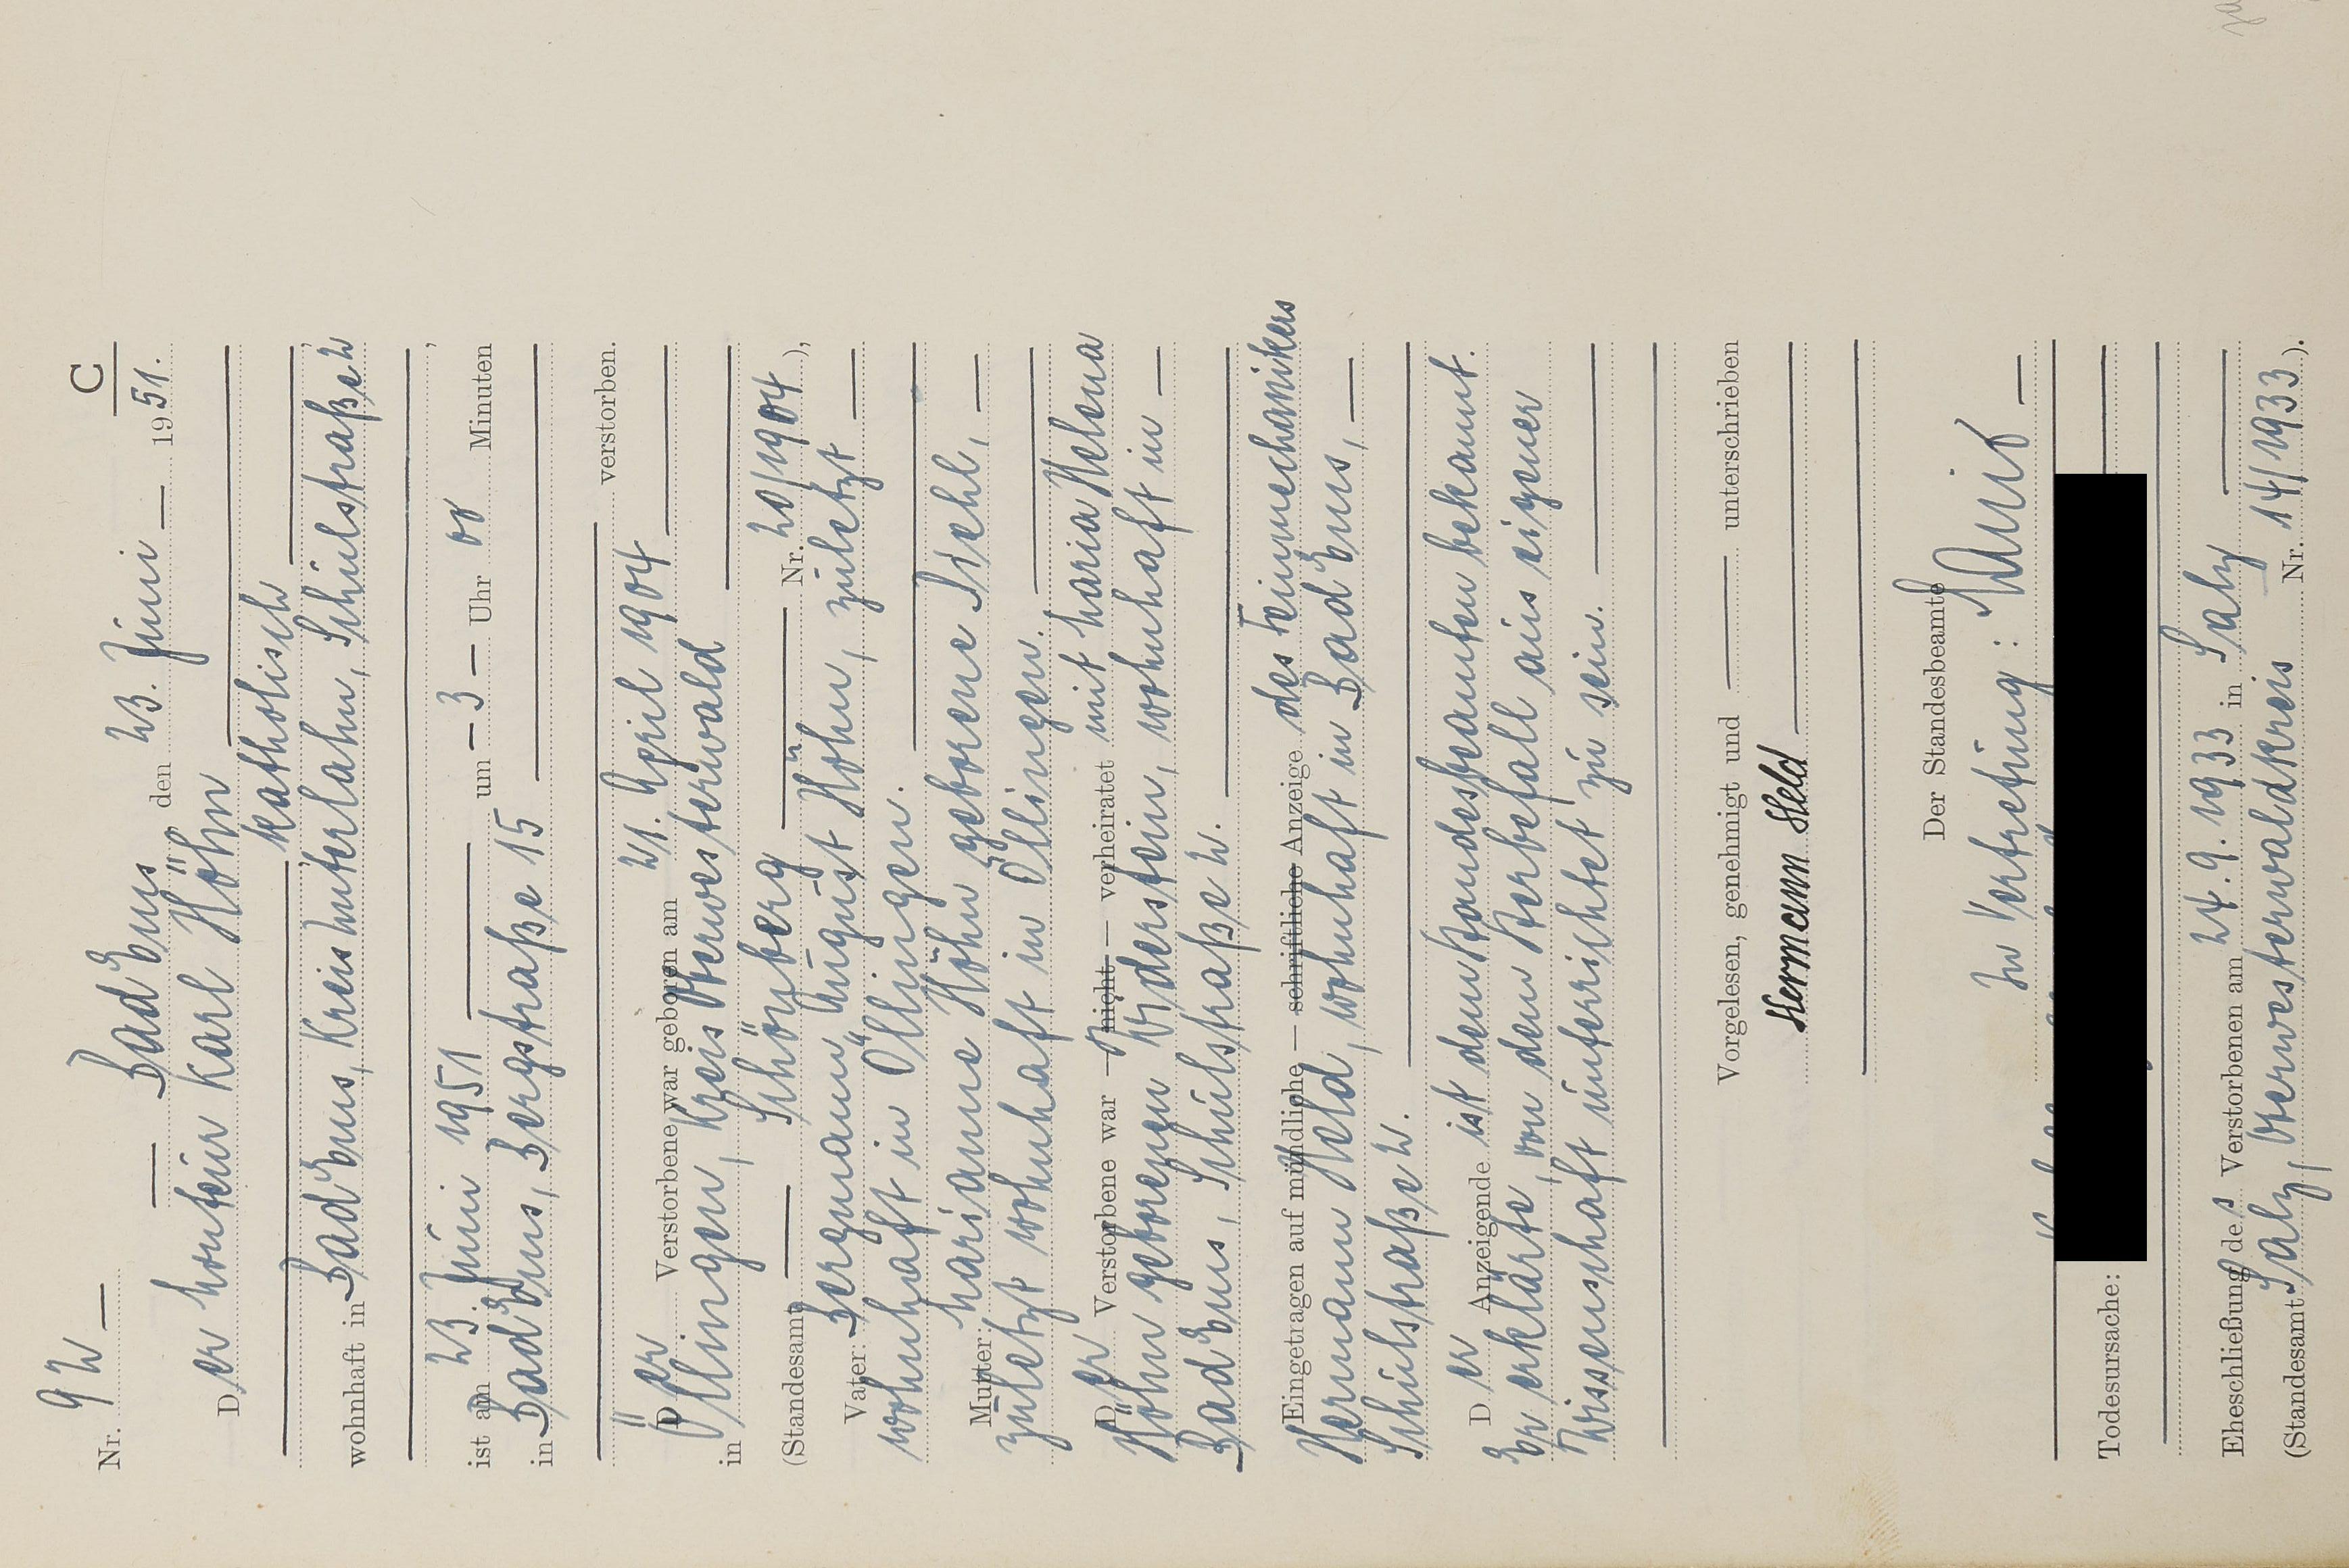 C
Nr. 92 —
— Bad Ems den 23. Juni — 1951.
Der Monteur Karl Höhn
katholisch,
wohnhaft in Bad Ems, Kreis Unterlahn, Schulstraße 2,
ist am 23. Juni 1951 um — 3 — Uhr 00 Minuten
in Bad Ems, Bergstraße 15
verstorben.
Der Verstorbene war geboren am 21. April 1904
in Öllingen, Kreis Oberwesterwald
(Standesamt — Schönberg — Nr. 20/1904),
Vater: Bergmann August Höhn, zuletzt —
wohnhaft in Öllingen.
Mutter: Marianne Höhn geborene Stehl, —
zuletzt wohnhaft in Öllingen.
Der Verstorbene war — nicht — verheiratet mit Maria Helena
Höhn geborenen Vderstein, wohnhaft in —
Bad Ems, Schulstraße 2.
Eingetragen auf mündliche — schriftliche Anzeige des Feinmechanikers
Hermann Held, wohnhaft in Bad Ems, —
Schulstraße 2.
Der Anzeigende ist dem Standesbeamten bekannt.
Er erklärte, von dem Sterbefall aus eigener
Wissenschaft unterrichtet zu sein.
Vorgelesen, genehmigt und — unterschrieben
Hermann Held
Der Standesbeamte
In Vertretung:
Todesursache:
Eheschließung des Verstorbenen am 24.9.1933 in Salz
(Standesamt Salz, Oberwesterwaldkreis Nr. 14/1933).